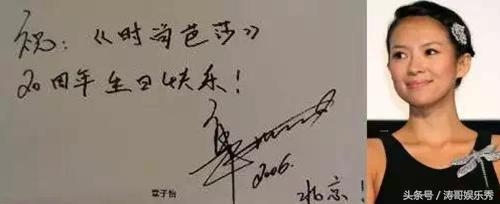 祝：《时尚芭莎》
20周年生日快乐！
章
2006.
章子怡
北京
头条号 / 涛哥娱乐秀